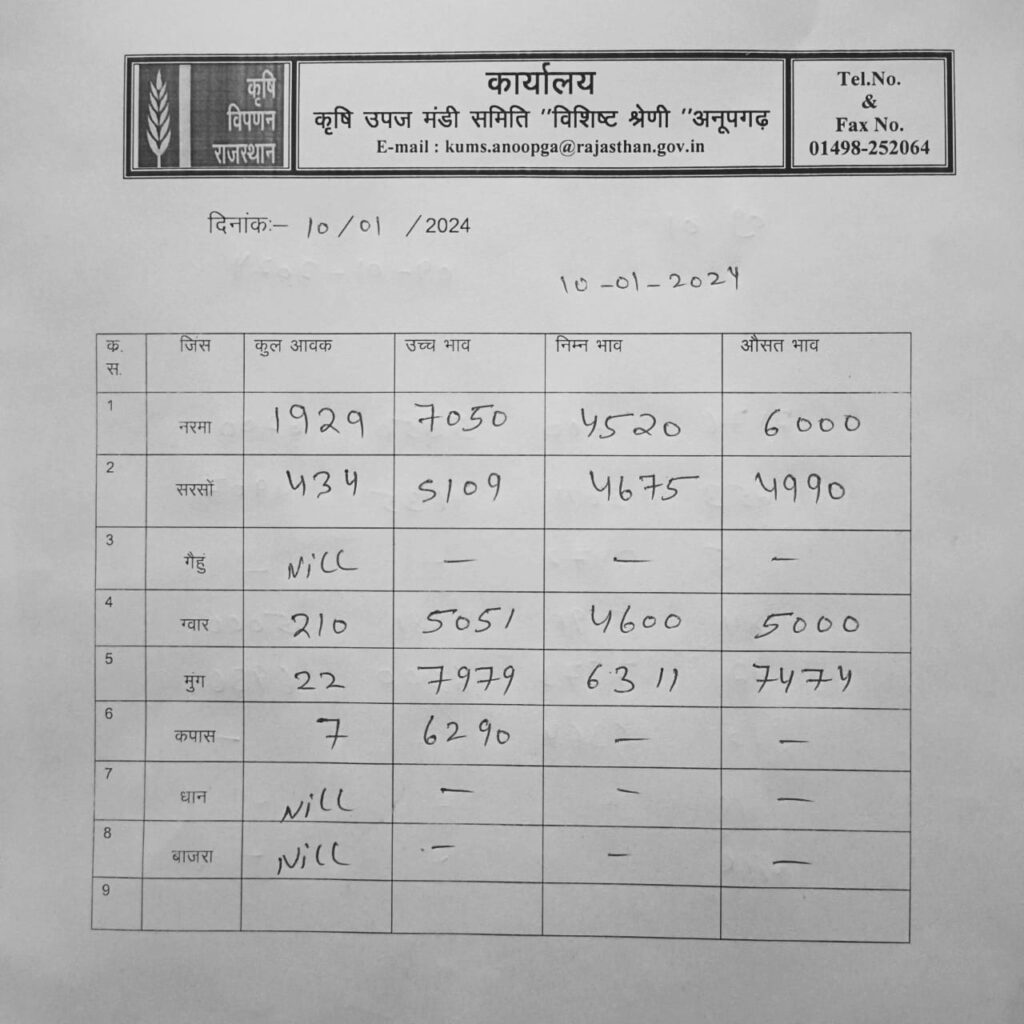 कृषि
विपणन
राजस्थान
कार्यालय
कृषि उपज मंडी समिति "विशिष्ट श्रेणी "अनूपगढ़
E-mail : kums.anoopga@rajasthan.gov.in
Tel.No.
&
Fax No.
01498-252064
दिनांकः– 10/01 /2024
10-01-2024
क. स. जिंस कुल आवक उच्च भाव निम्न भाव औसत भाव
1 नरमा 1929 7050 4520 6000
2 सरसों 434 5109 4675 4990
3 गैहुं Nill — — —
4 ग्वार 210 5051 4600 5000
5 मुंग 22 7979 6311 7474
6 कपास 7 6290 — —
7 धान Nill — — —
8 बाजरा Nill — — —
9